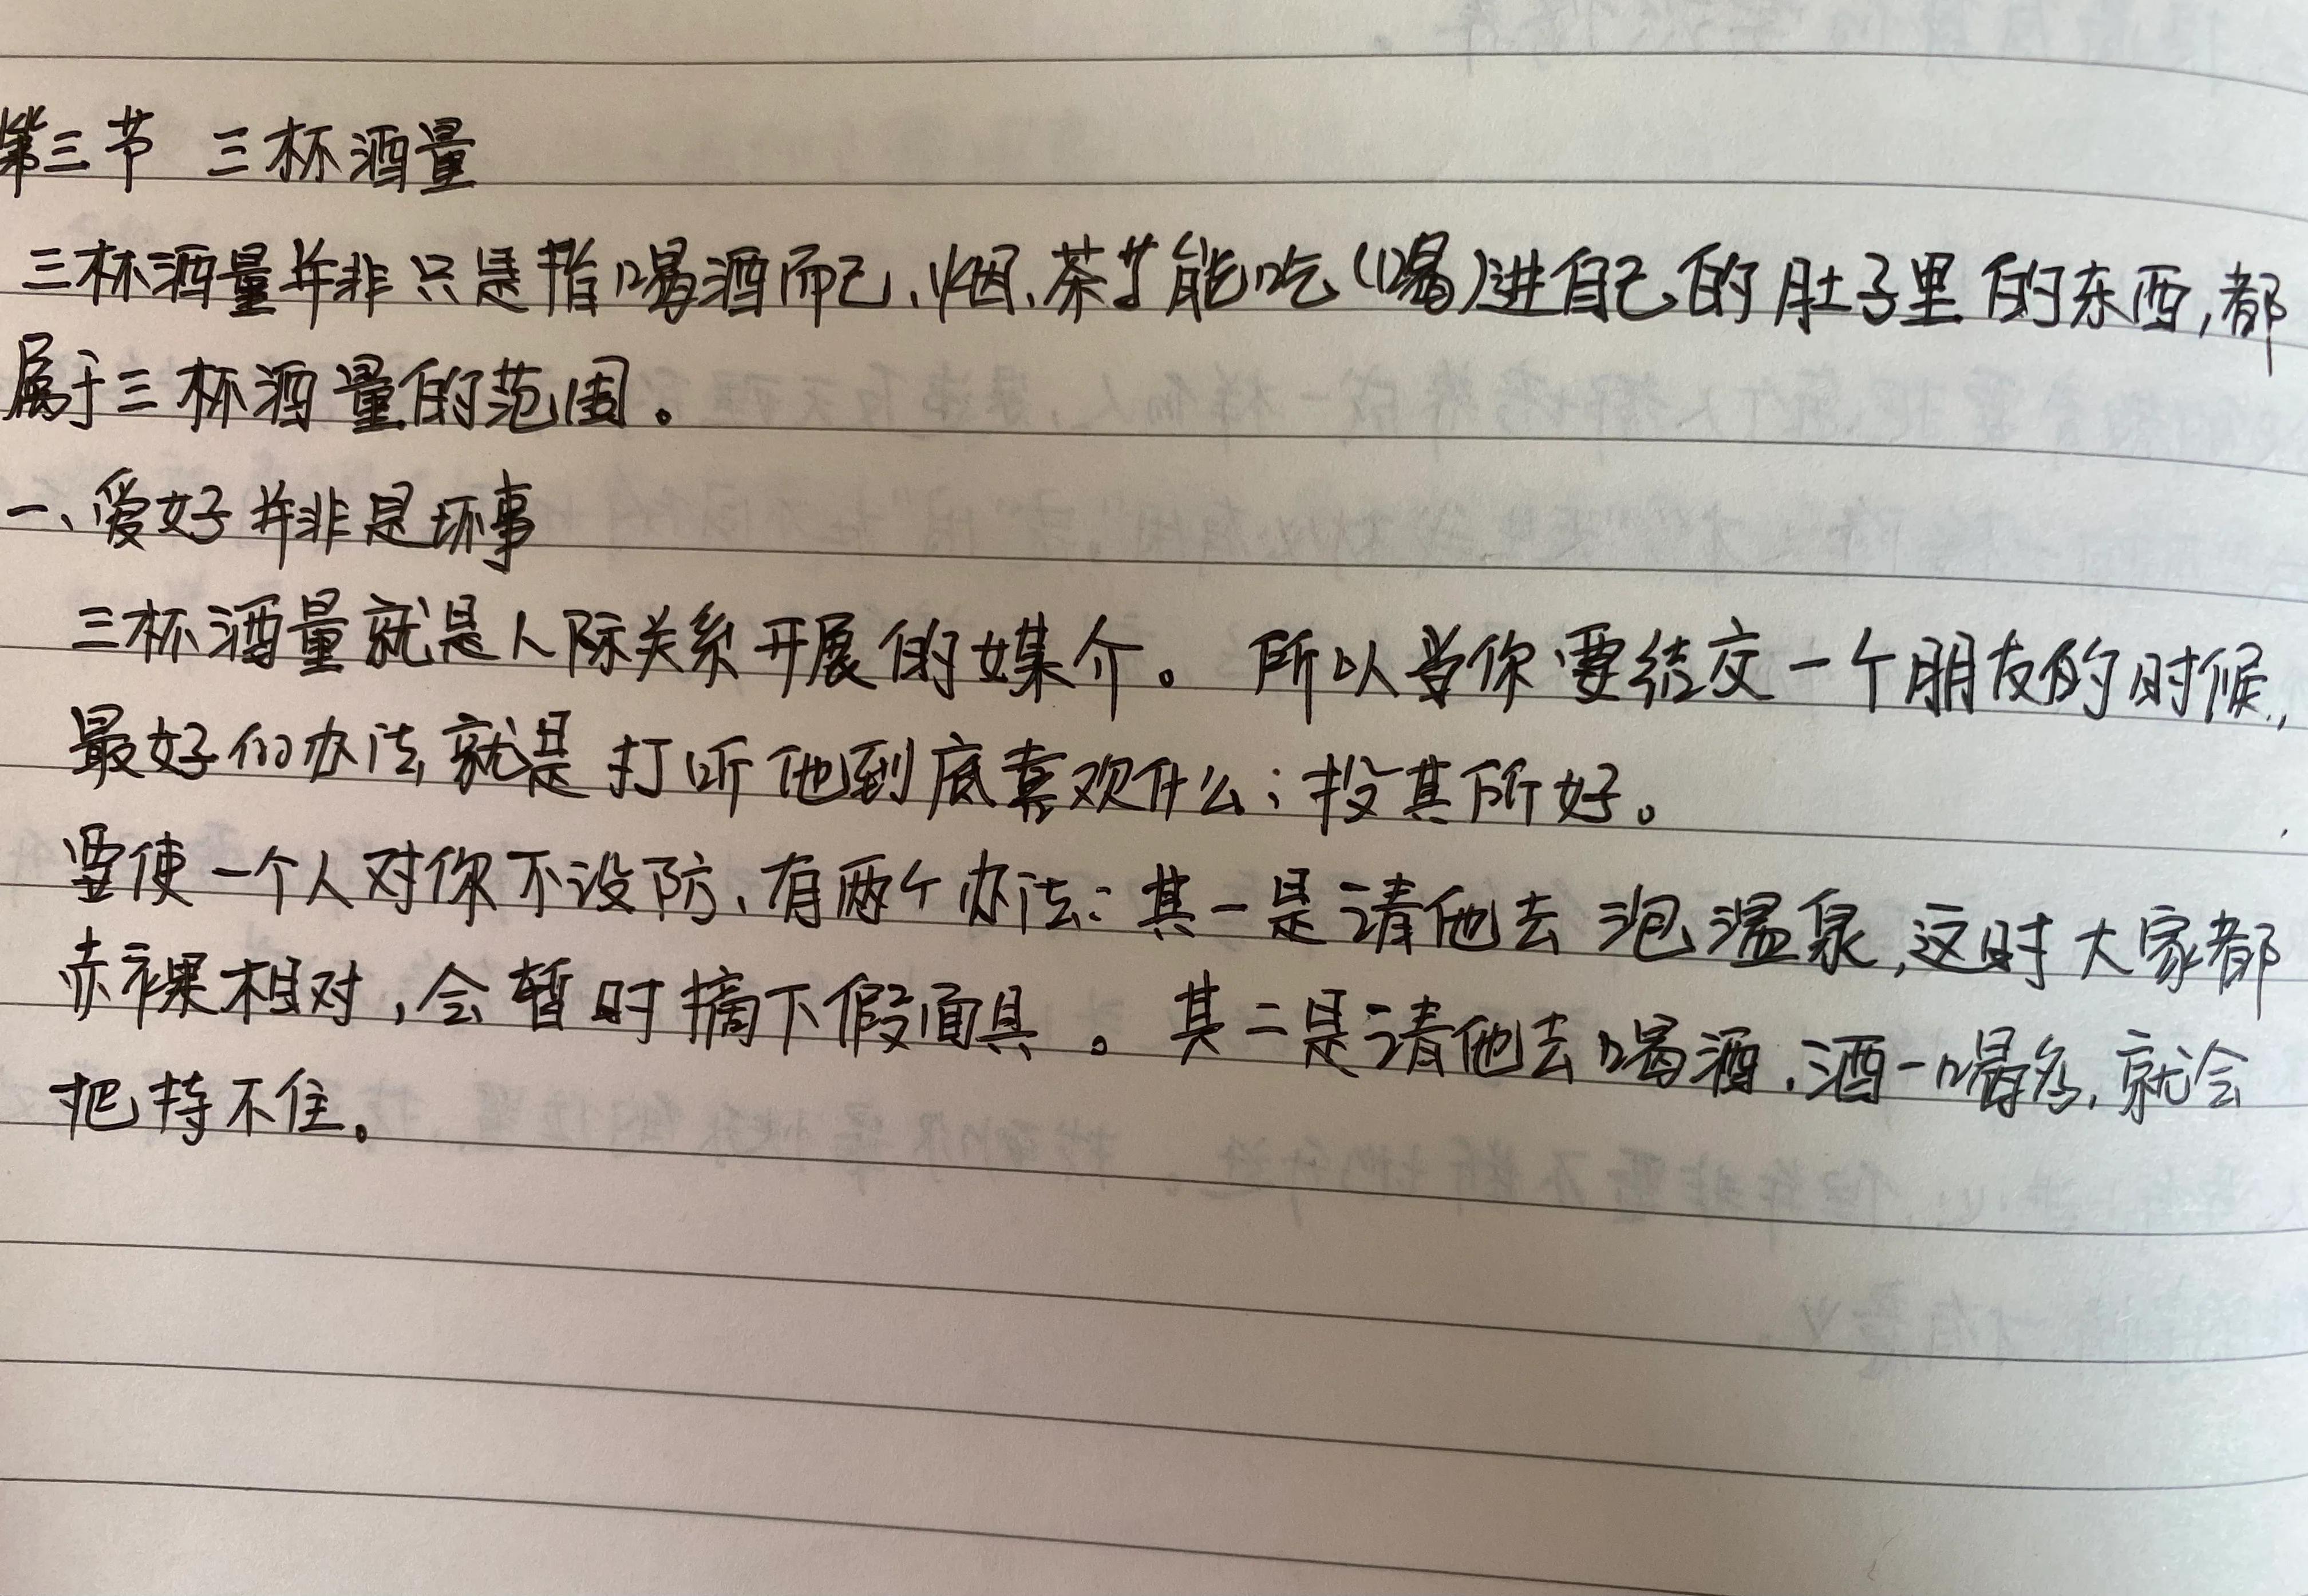 第三节 三杯酒量
三杯酒量并非只是指喝酒而已、烟、茶等能吃(喝)进自己的肚子里的东西,都
属于三杯酒量的范围。
一、爱好并非是坏事
三杯酒量就是人际关系开展的媒介。所以当你要结交一个朋友的时候,
最好的办法就是打听他到底喜欢什么;投其所好。
要使一个人对你不设防、有两个办法:其一是请他去泡温泉,这时大家都
赤裸相对,会暂时摘下假面具。其二是请他去喝酒、酒一喝多,就会
把持不住。